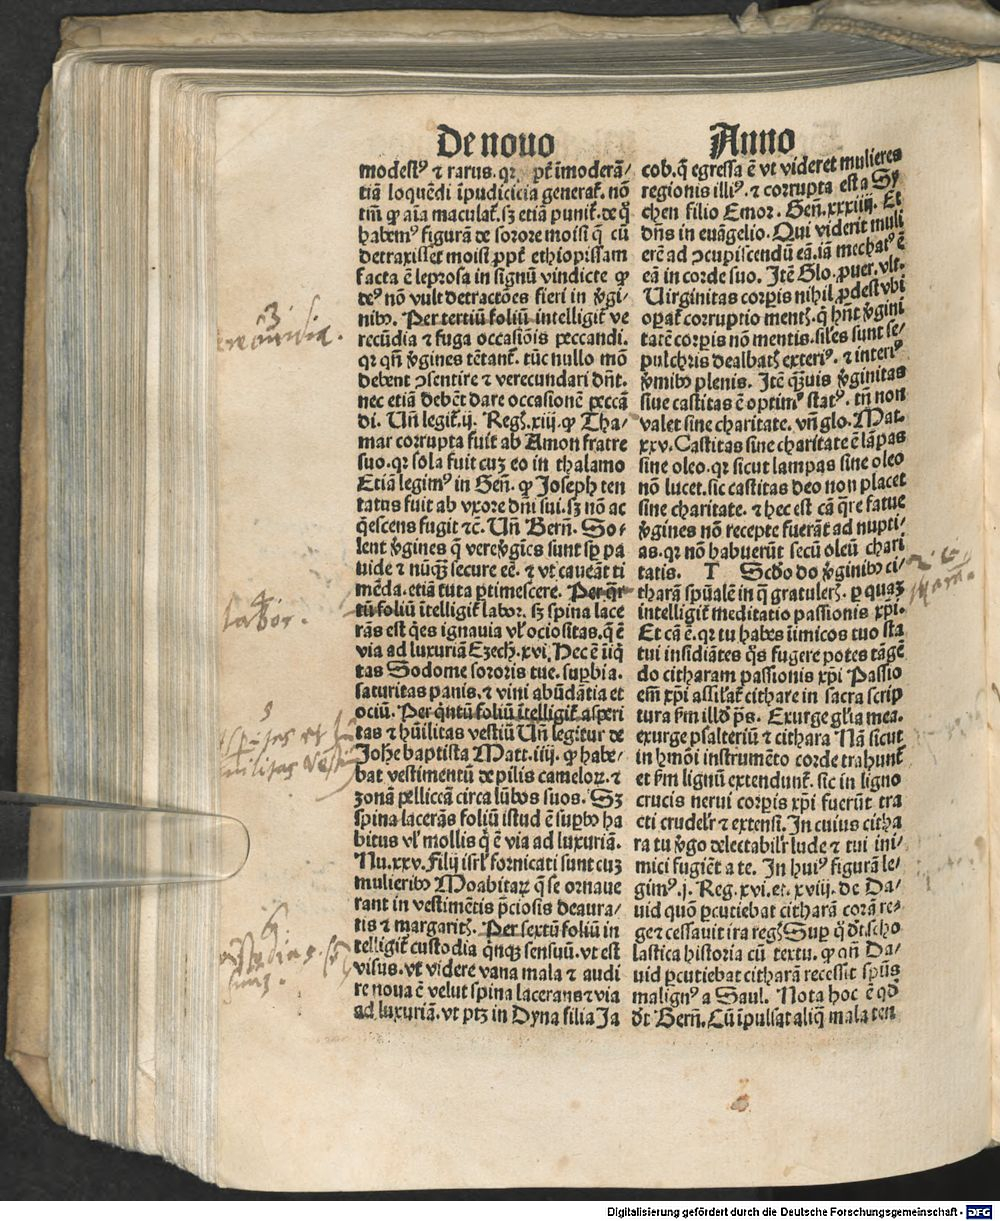 De nouo
Anno
modestꝰ ⁊ rarus. qꝛ ꝓpt̄ īmoderā⸗
tiā loquēdi īpudicicia generat̄. nō
tm̄ ꝙ aīa maculat̄. sꝫ etiā punit̄. de q̊
habemꝰ figurā de sorore moisi q̄ cū
detraxisset moisi ꝓpt̄ ethiopissam
facta ē leprosa in signū vindicte ꝙ
teꝰ nō vult detractōes fieri in v̄gi⸗
nibꝰ. Per tertiū foliū intelligit̄ ve
recūdia ⁊ fuga occasiōis peccandi.
qꝛ qn̄ v̄gines tētant̄. tūc nullo mō
debent ꝯsentire ⁊ verecundari dn̄t.
nec etiā debēt dare occasionē peccā
di. Un̄ legit̄. ij. Regꝫ. xiij. ꝙ Tha⸗
mar corrupta fuit ab Amon fratre
suo. qꝛ sola fuit cuꝫ eo in thalamo
Etiā legimꝰ in Gen̄. ꝙ Joseph ten
tatus fuit ab vxore dn̄i sui. sꝫ nō ac
q̄escens fugit ⁊c̄. Un̄ Bern̄. So⸗
lent v̄gines q̄ vere v̄gīes sunt sp̄ pa
uide ⁊ nūqꝫ secure eē. ⁊ vt caueāt ti
mēda. etiā tuta ꝑtimescere. Per qr̄
tū foliū ītelligit̄ labor. sꝫ spina lace
rās est q̄es ignauia vl̓ ociositas. q̄ ē
via ad luxuriā Ezech. xvi. Hec ē īiq̄
tas Sodome sororis tue. supbia.
saturitas panis. ⁊ vini abūdātia et
ociū. Per qn̄tū foliū ītelligit̄ asperi
tas ⁊ hūilitas vestiū Un̄ legitur de
Joh̄e baptista Matt. iiij. ꝙ habe⸗
bat vestimentū de pilis cameloꝝ. ⁊
zonā pelliceā circa lūbos suos. Sꝫ
spina lacerās foliū istud ē suꝑbꝰ ha
bitus vl̓ mollis q̄ ē via ad luxuriā.
Nu. xxv. Filij isrl̓ fornicati sunt cuꝫ
mulieribꝰ Moabitaꝝ q̄ se ornaue
rant in vestimētis p̄ciosis deaura⸗
tis ⁊ margaritꝫ. Per sextū foliū in
telligit̄ custodia q̄nqꝫ sensuū. vt est
visus. vt videre vana mala ⁊ audi
re noua ē velut spina lacerans ⁊ via
ad luxuriā. vt ptꝫ in Dyna filia Ja
cob. q̄ egressa ē vt videret mulieres
regionis illiꝰ. ⁊ corrupta est a Sy
chen filio Emor. Gen̄. xxxiiij. Et
dn̄s in euāgelio. Qui viderit muli
erē ad ꝯcupiscendū eā. iā mechatꝰ ē
eā in corde suo. Itē Glo. ꝓuer. vlt.
Uirginitas corꝑis nihil ꝓdest vbi
oꝑat̄ corruptio mentꝫ. q̄ hn̄t v̄gini
tatē corꝑis nō mentis. siles sunt se⸗
pulchris dealbatꝫ exteriꝰ. ⁊ interiꝰ
v̄mibꝰ plenis. Itē qꝫuis v̄ginitas
siue castitas ē optimꝰ statꝰ. tn̄ non
valet sine charitate. vn̄ glo. Mat.
xxv. Castitas sine charitate ē lāpas
sine oleo. qꝛ sicut lampas sine oleo
nō lucet. sic castitas deo non placet
sine charitate. ⁊ hec est cā q̄re fatue
v̄gines nō recepte fuerāt ad nupti⸗
as. qꝛ nō habuerūt secū oleū chari
tatis. T Scd̓o do v̄ginibꝰ ci⸗
tharā spūalē in q̄ gratulerꝫ. ꝑ quaꝫ
intelligit̄ meditatio passionis xp̄i.
Et cā ē. qꝛ tu habes īimicos tuo sta
tui insidiātes q̊s fugere potes tāgē
do citharam passionis xp̄i Passio
em̄ xp̄i assilat̄ cithare in sacra scrip
tura ẜm illd̓ pꝭs. Exurge gl̓ia mea.
exurge psalteriū ⁊ cithara Nā sicut
in hmōi instrumēto corde trahunt̄
et ẜm lignū extendunt̄. sic in ligno
crucis nerui corꝑis xp̄i fuerūt tra
cti crudel̓r ⁊ extensi. In cuius citha
ra tu v̄go delectabil̓r lude ⁊ tui ini⸗
mici fugiēt a te. In huiꝰ figurā le⸗
gimꝰ. j. Reg. xvi. et. xviij. de Da⸗
uid quō ꝑcutiebat citharā corā re⸗
ge ⁊ cessauit ira regꝫ Suꝑ q̊ d̓t. scho
lastica historia cū textu. ꝙ qn̄ Da⸗
uid ꝑcutiebat citharā recessit spūs
malignꝰ a Saul. Nota hoc ē qd̓
d̓t Bern̄. Cū īpulsat aliq̄ mala ten
3
4
labor.
5
6